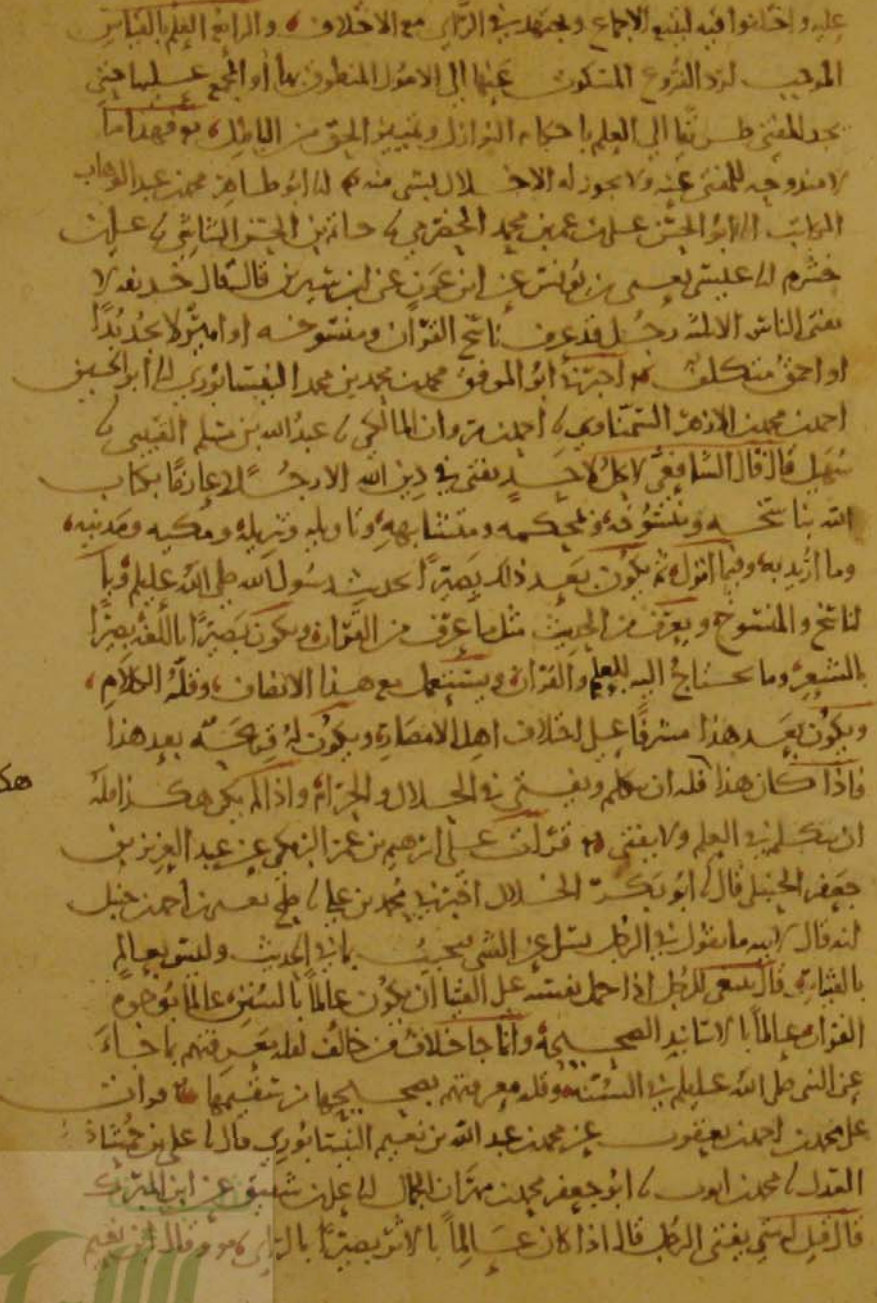 عليه واختلفوا فيه ليتبع الاجماع ويجتهد في الراي مع الاختلاف والرابع العلم بالقياس
الموجب لرد الفروع المسكوت عنها الى الاصول المنطوق بها او المجمع عليها حتى
يجد المفتي طريقا الى العلم باحكام النوازل وتمييز الحق من الباطل فهذا ما
لا مندوحة للمفتي عنه ولا يجوز له الاخلال بشي منه انا ابو طاهر محمد بن عبد الوهاب
الكاتب انا ابو الحسن علي بن عمر بن محمد الحضرمي نا حاتم بن الحسن الشاشي نا علي بن
خشرم انا عيسى يعني بن يونس عن ابن عون عن ابن سيرين قال قال حذيفه لا
يفتي الناس الا ثلثه رجل قد عرف ناسخ القران ومنسوخه او امير لا يجد بدا
او احمق متكلف اخبرنا ابو الموفق محمد بن محمد بن محمد النيسابوري انا ابو الحسين
احمد بن محمد بن الازهر السمناوي نا احمد بن مروان المالكي نا عبد الله بن مسلم القتيبي نا
سهيل قال قال الشافعي لا يحل لاحد يفتي في دين الله الا رجلا عارفا بكتاب
الله بناسخه ومنسوخه وبمحكمه ومتشابهه وتاويله وتنزيله ومكيه ومدنيه
وما اريد به وفيما انزل ثم يكون بعد ذلك بصيرا بحديث رسول الله صلى الله عليه وسلم وبا
لناسخ والمنسوخ ويعرف من الحديث مثل ما عرف من القران ويكون بصيرا باللغه بصيرا
بالشعر وما يحتاج اليه للعلم والقران ويستعمل مع هذا الانصاف وقله الكلام
ويكون بعد هذا مشرفا على اختلاف اهل الامصار ويكون له قريحه بعد هذا
فاذا كان هذا فله ان يتكلم ويفتي في الحلال والحرام واذا لم يكن هكذا فله
ان يتكلم في العلم ولا يفتي قرات على ابرهيم بن عمر البرمكي عن عبد العزيز بن
جعفر الحنبلي قال نا ابو بكر الخلال اخبرني محمد بن علي نا صلح يعني بن احمد بن حنبل
انه قال لابيه ما تقول في الرجل يسل عن الشي فيجيب بما في الحديث وليس بعالم
بالفتيا قال ينبغي للرجل اذا حمل نفسه على الفتيا ان يكون عالما بالسنن عالما بوجوه
القران عالما بالاسانيد الصحيحة وانما جا خلاف من خالف لقله معرفتهم بما جاء
عن النبي صلى الله عليه وسلم في السنة وقله معرفتهم بصحيحها من سقيمها قرات
على محمد بن احمد بن يعقوب عن محمد بن عبد الله بن نعيم النيسابوري قال نا علي بن حمشاذ
العدل نا محمد بن ايوب نا ابو جعفر محمد بن مهران الجمال انا علي بن شقيق عن ابن المبارك
قال قيل له متى يفتي الرجل قال اذا كان عالما بالاثر بصيرا بالراي وقال ابن نعيم